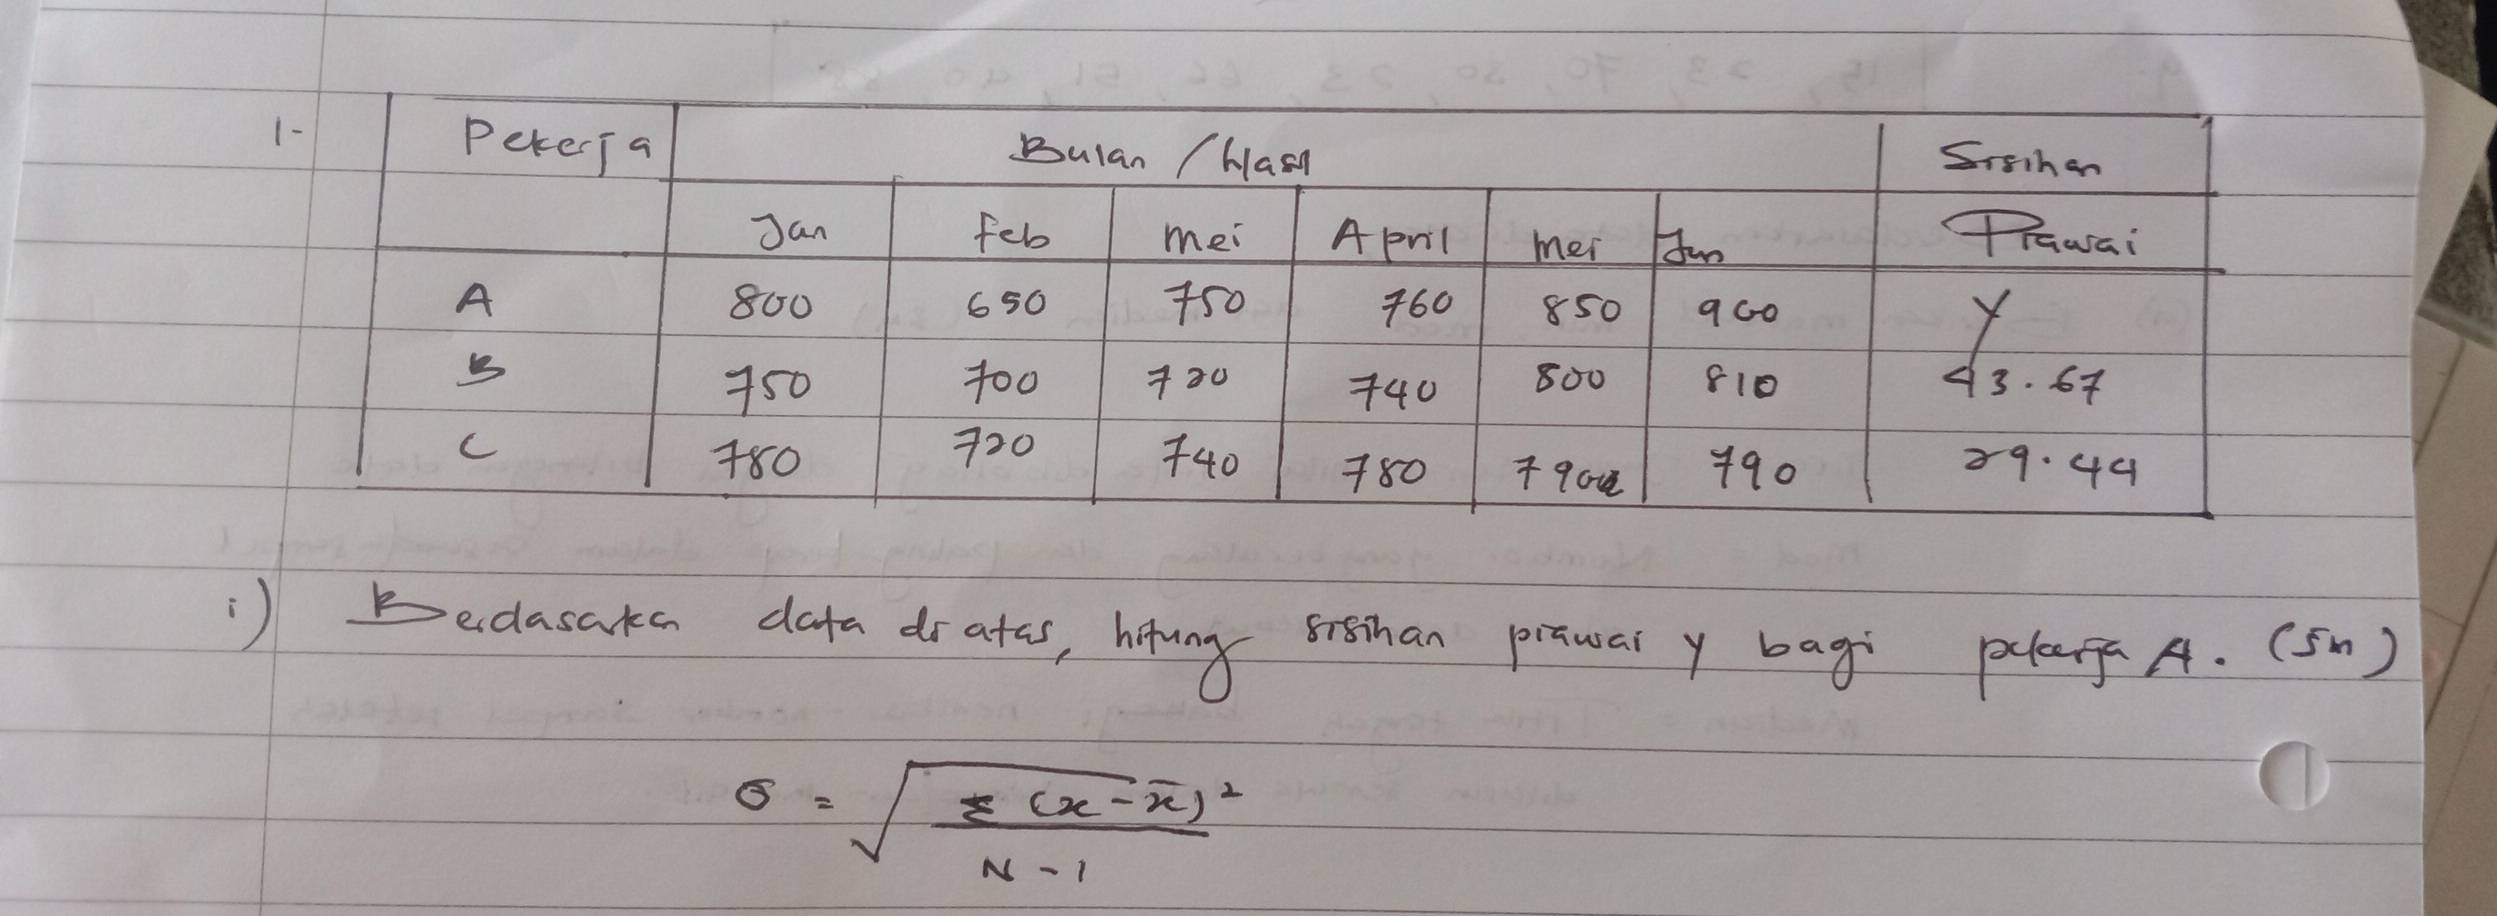 1-
Pekerja Bulan / Hasil Sisihan
Jan Feb Mei April Mei Jun Piawai
A 800 650 750 760 850 900 y
B 750 700 720 740 800 810 43.67
C 780 720 740 780 790 790 29.44
i) Berdasarkan data di atas, hitung sisihan piawai y bagi pekerja A. (5m)
σ = √ Σ (x - x̄)²
N - 1